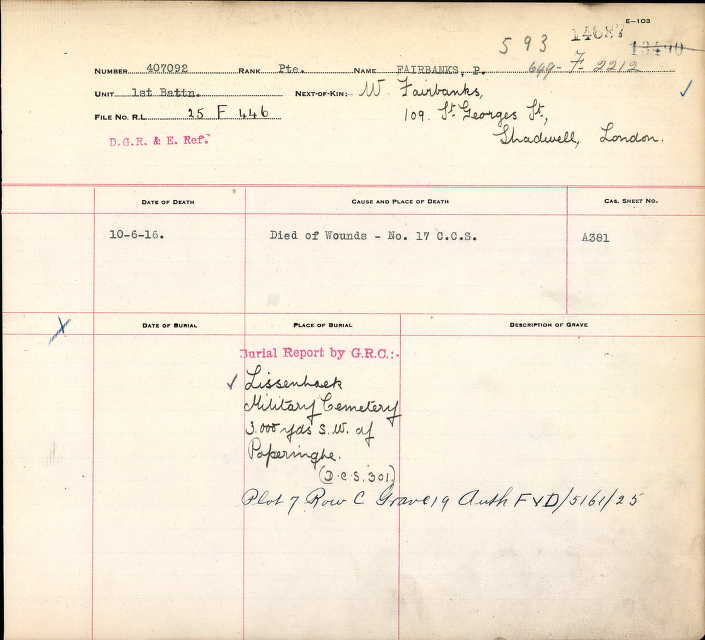 E-103
593 14687 13440
NUMBER 407092 RANK Pte. NAME FAIRBANKS, P. 649-F-2212
UNIT 1st Battn. NEXT-OF-KIN: W. Fairbanks,
FILE No. R.L. 25 F 446 109. St. Georges St,
D.G.R. & E. Ref. Shadwell, London.
DATE OF DEATH CAUSE AND PLACE OF DEATH CAS. SHEET NO.
10-6-16. Died of Wounds - No. 17 C.C.S. A381
X DATE OF BURIAL PLACE OF BURIAL DESCRIPTION OF GRAVE
Burial Report by G.R.C.:-
Lissenhoek
Military Cemetery
3.000 yds S.W. of
Poperinghe.
(D.C.S. 301)
Plot 7 Row C Grave 19 Auth F Y D/5161/25